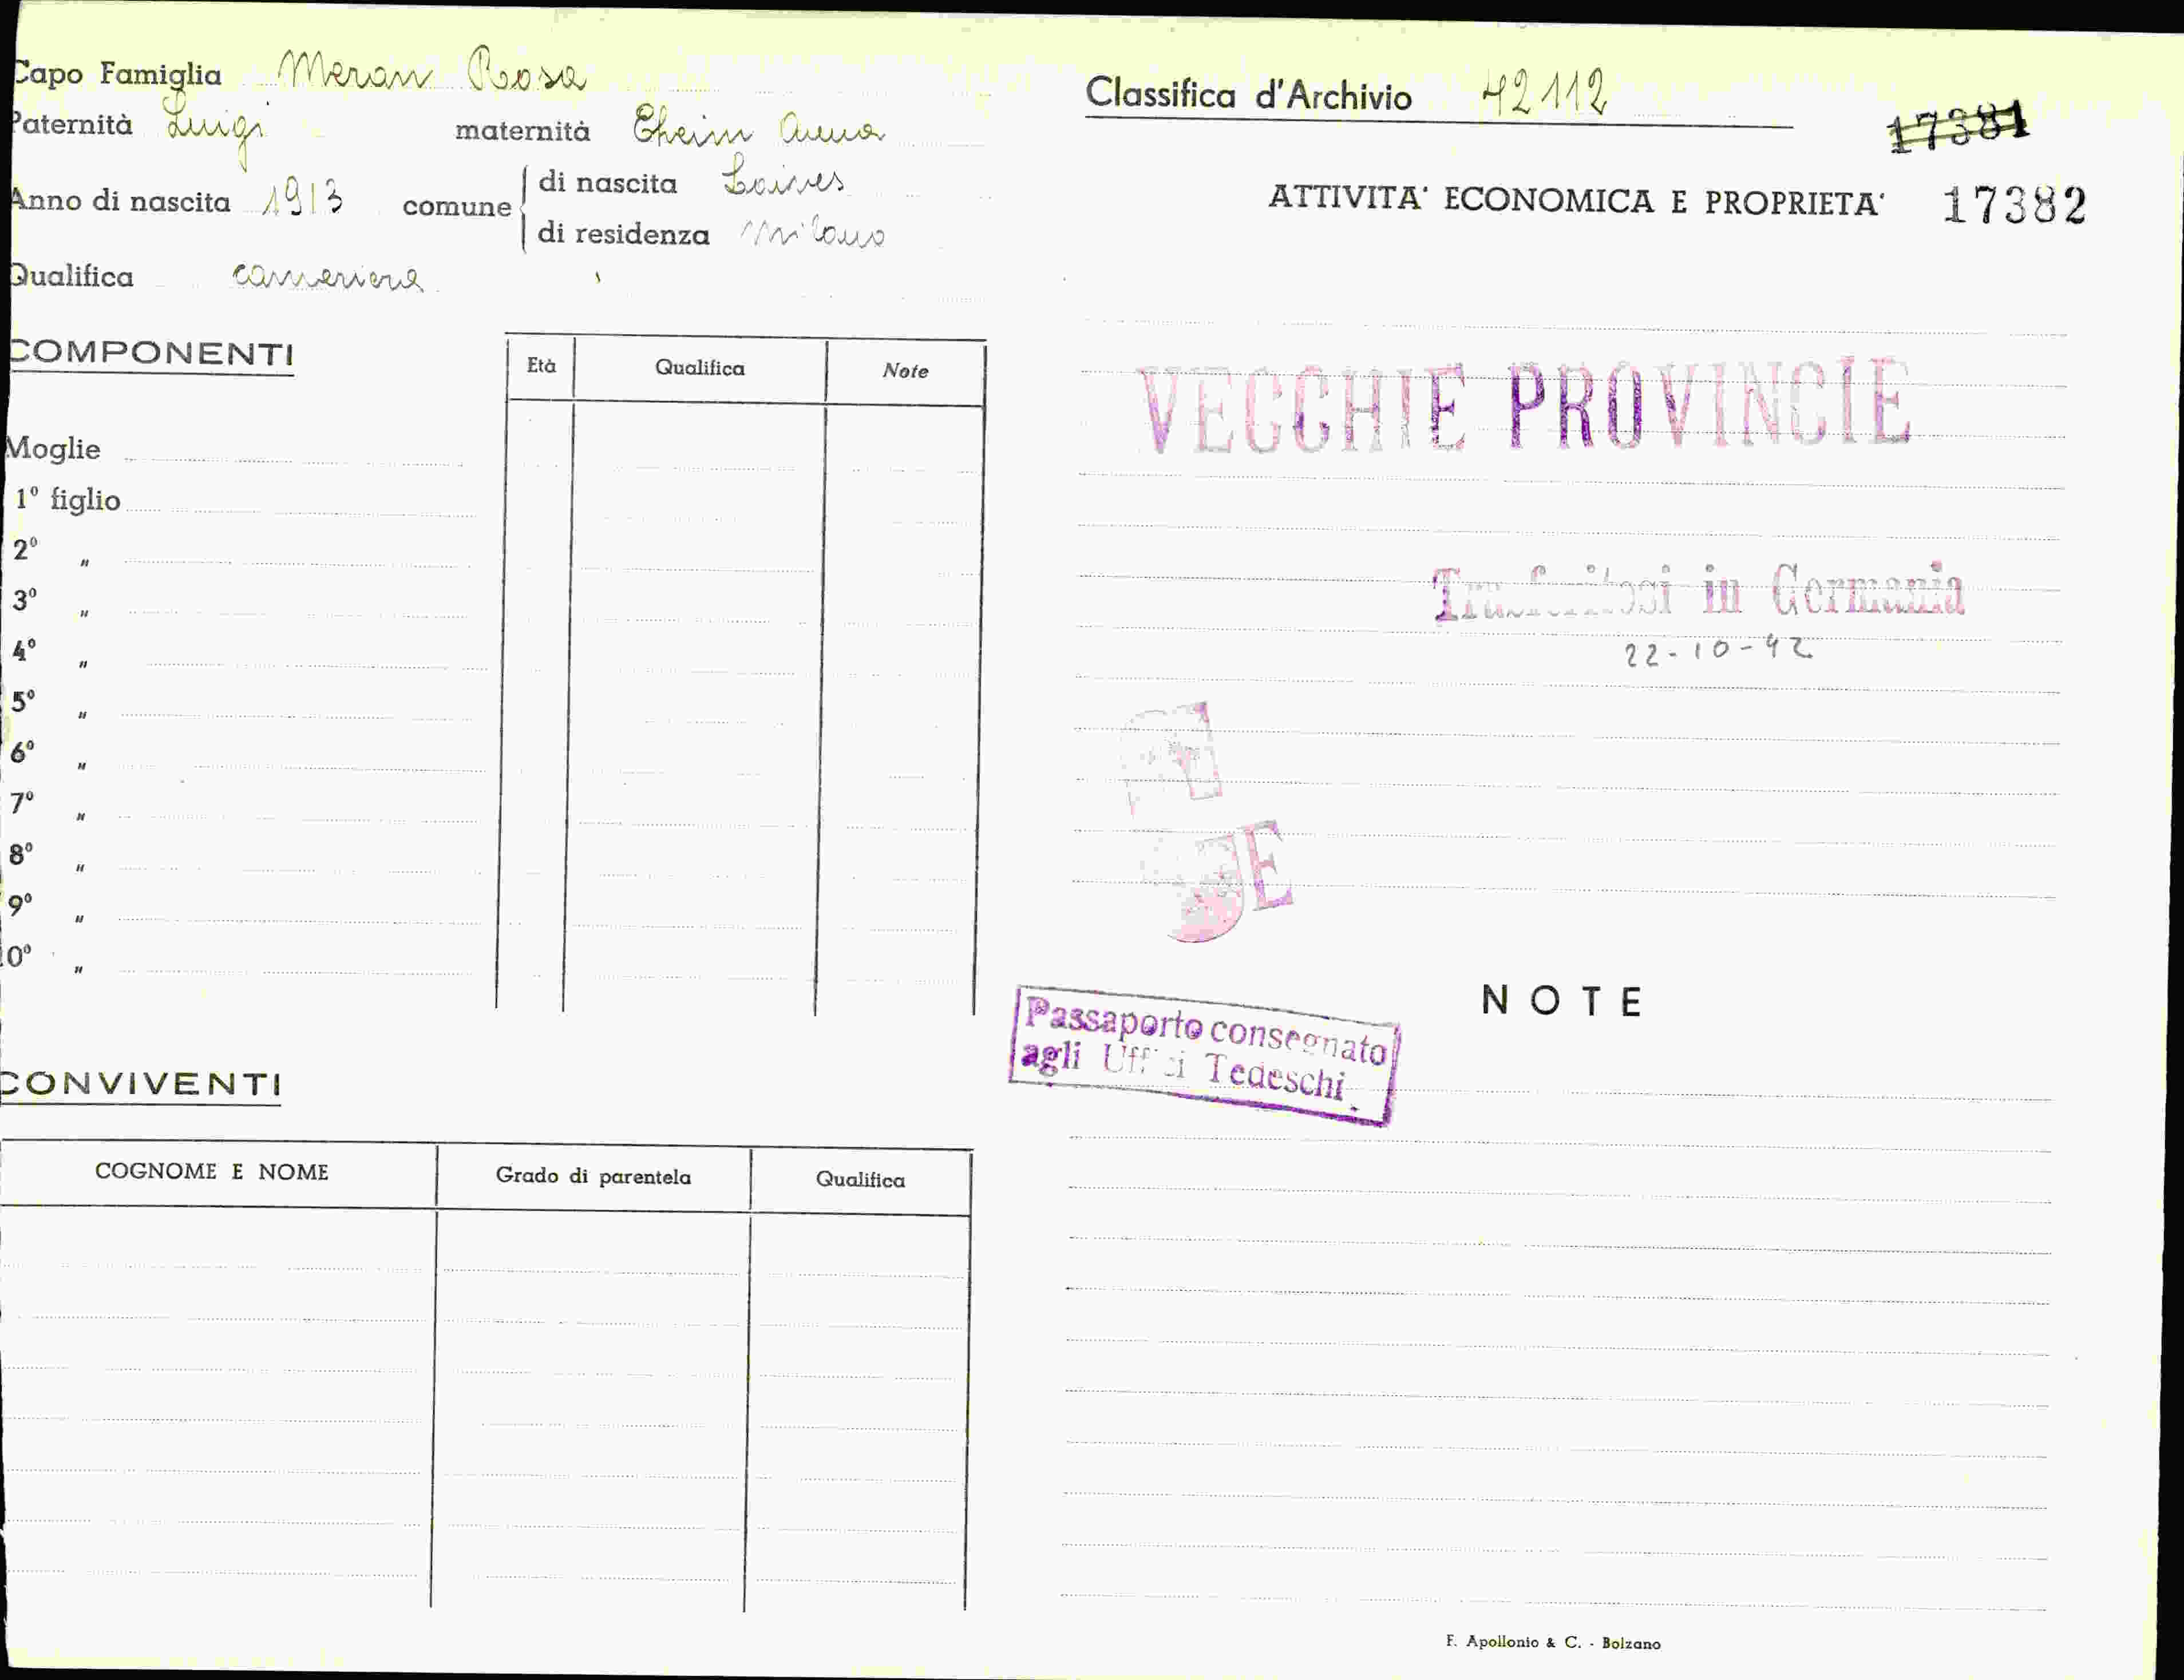 Capo Famiglia Meran Rosa
Paternità Luigi maternità Eheim Anna
Anno di nascita 1913 comune di nascita Laives
di residenza Milano
Qualifica cameriera
COMPONENTI
Età Qualifica Note
Moglie
1º figlio
2º "
3º "
4º "
5º "
6º "
7º "
8º "
9º "
10º "
CONVIVENTI
COGNOME E NOME Grado di parentela Qualifica
Classifica d'Archivio 42112
17381
ATTIVITA' ECONOMICA E PROPRIETA' 17382
VECCHIE PROVINCIE
Trasferitosi in Germania
22-10-42
NOTE
Passaporto consegnato
agli Uffici Tedeschi.
F. Apollonio & C. - Bolzano